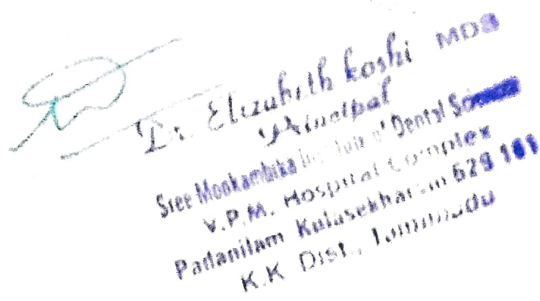 Dr. Elizabeth Koshi MDS
Principal
Sree Mookambika Institute of Dental Science
V.P.M. Hospital Complex
Padanilam Kulasekharam 629 161
K.K Dist., Tamilnadu